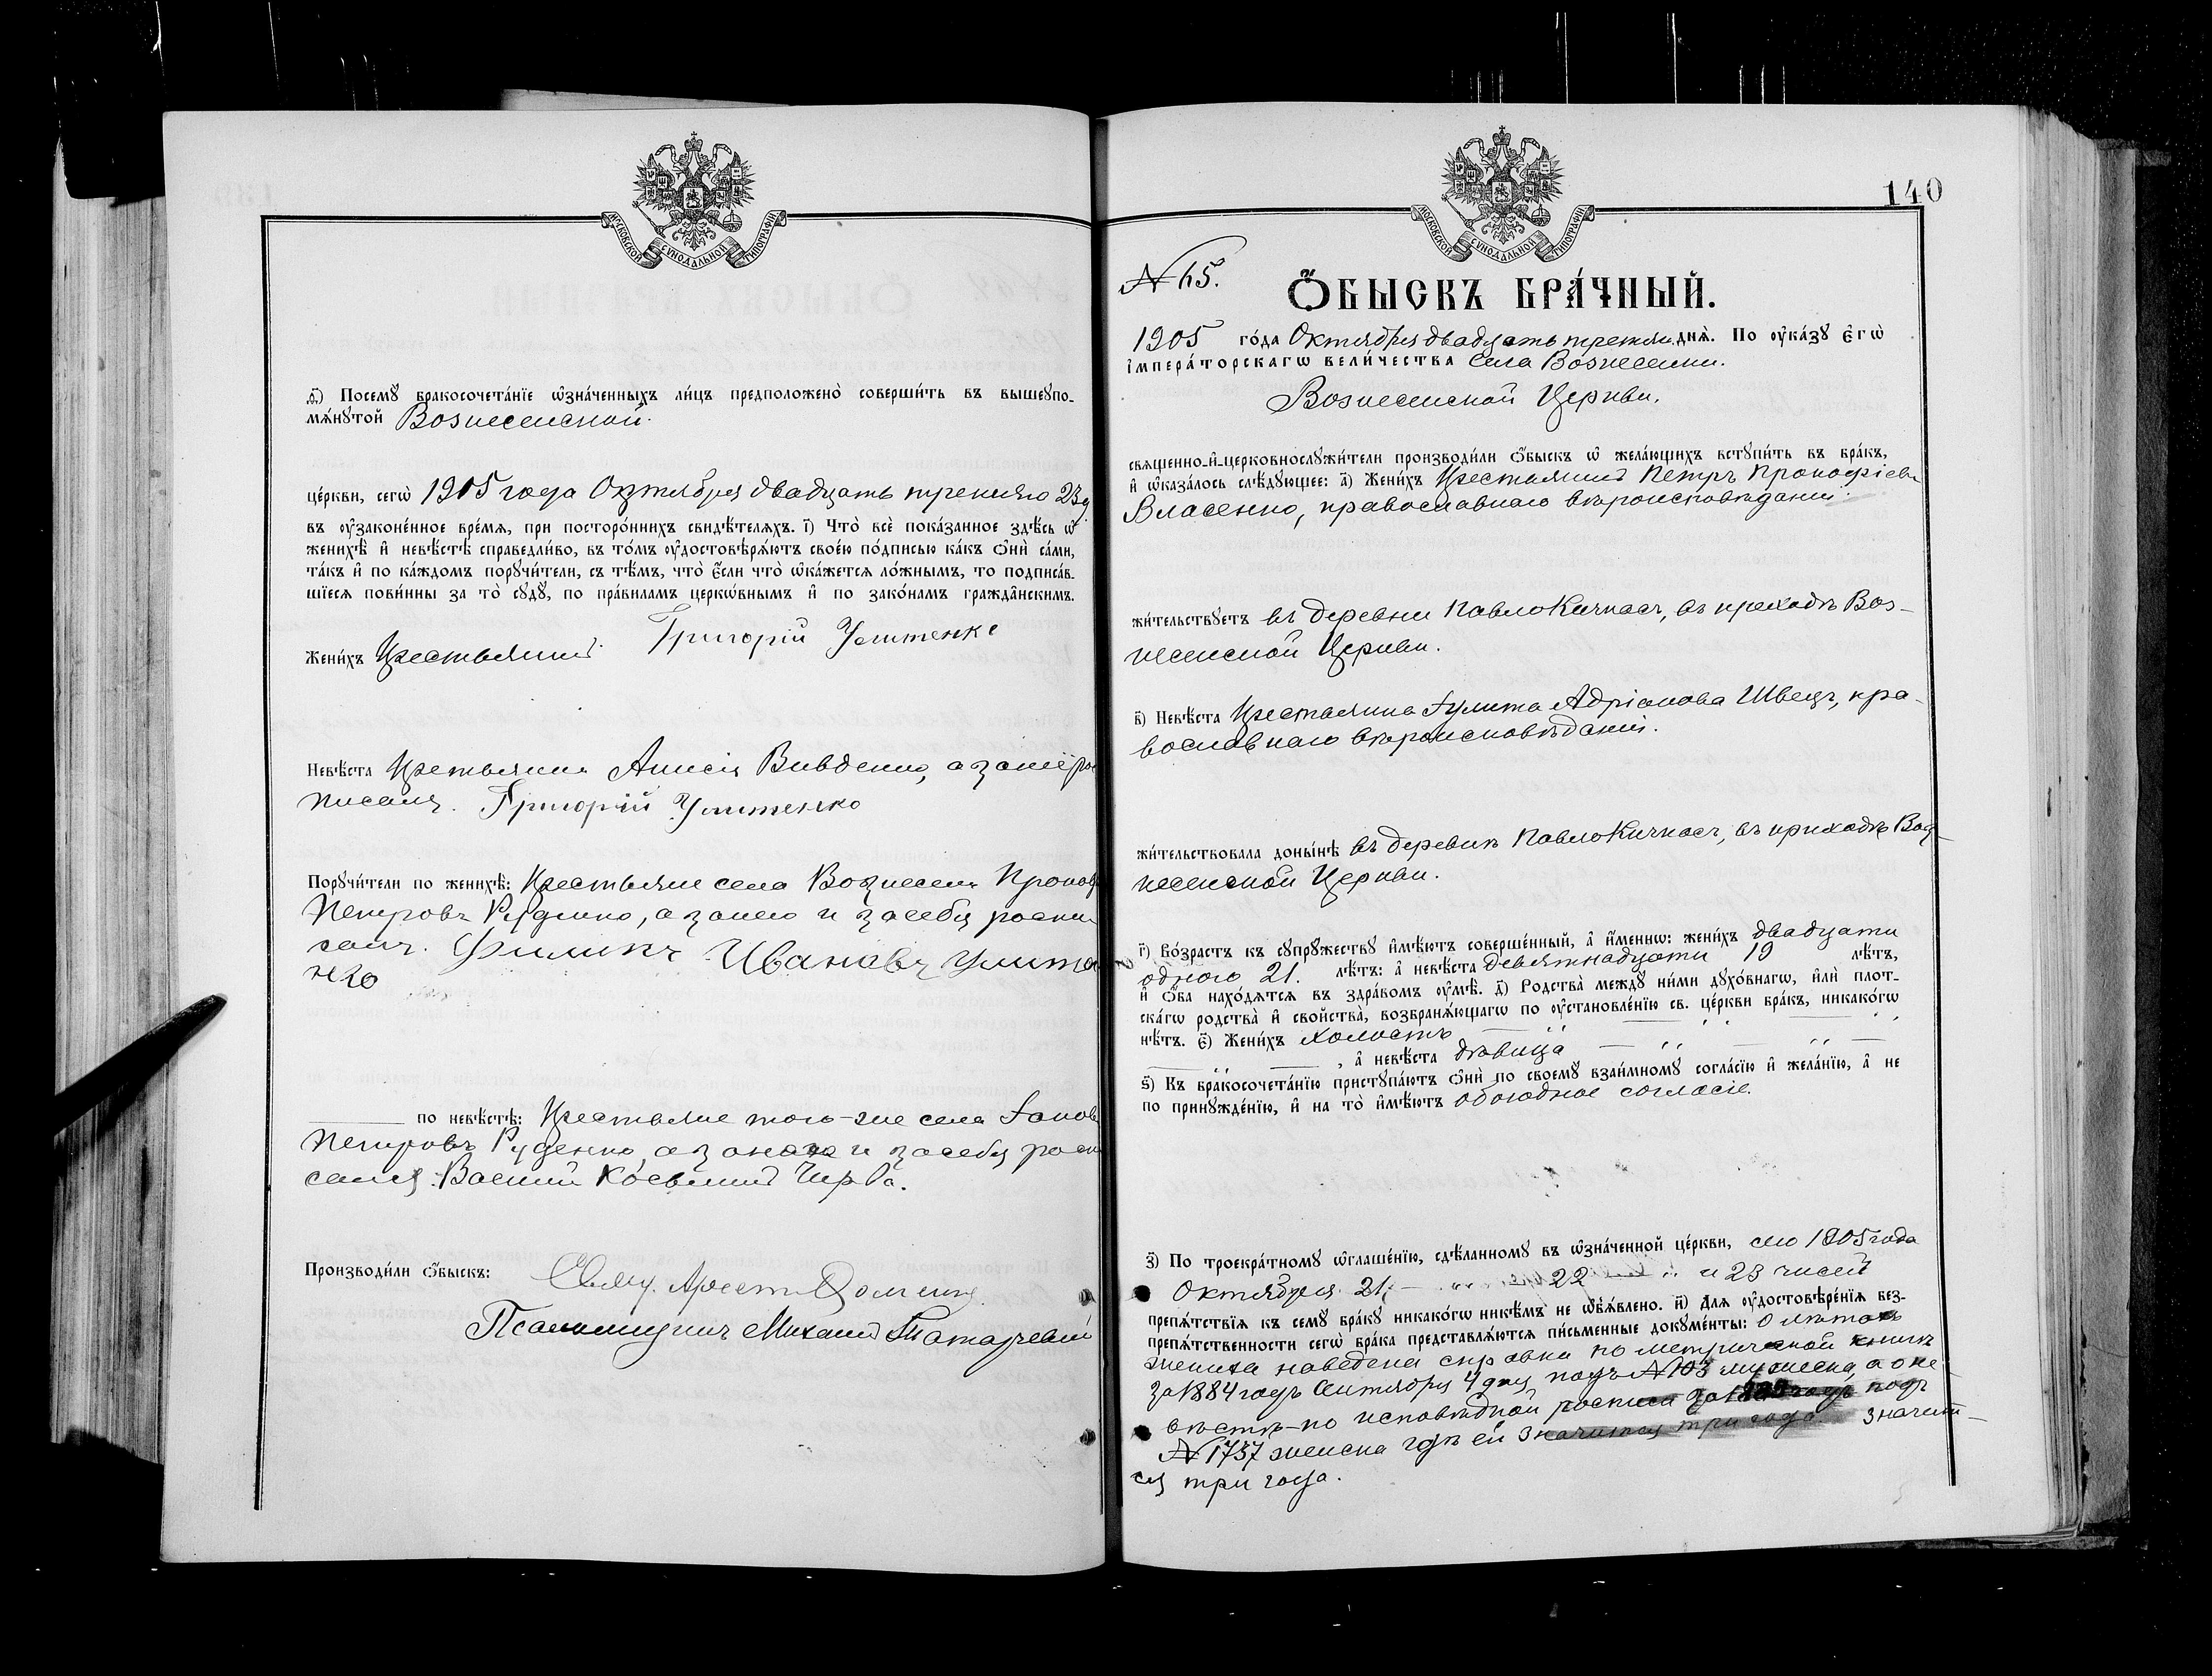 МОСКОВСКОЙ СѴНОДАЛЬНОЙ ТИПОГРАФІИ
ѳ҃) Посемꙋ бракосочета́нїе ѡ҆зна́ченныхъ ли́цъ предположено̀ соверши́ть въ вышеꙋпо-
мѧ́нꙋтой Вознесенской.
це́ркви, сегѡ̀ 1905 года Октября двадцать третьяго 23 д.
въ ᲂу҆законе́нное вре́мѧ, при посторо́ннихъ свидѣ́телѧхъ. і҃) Что̀ всѐ пока́занное здѣ́сь ѡ҆
женихѣ̀ и҆ невѣ́стѣ справедли́во, въ то́мъ ᲂу҆достовѣрѧ́ютъ свое́ю по́дписью ка́къ ѻ҆нѝ са́ми,
та́къ и҆ по ка́ждомъ порꙋчи́тели, съ тѣ́мъ, что̀ є҆́сли что̀ ѡ҆ка́жетсѧ ло́жнымъ, то подписа́в-
шїесѧ пови́нны за то̀ сꙋдꙋ̀, по пра́виламъ церкѡ́внымъ и҆ по зако́намъ гражда̂нскимъ.
Жени́хъ Крестьянинъ Григорій Улитенко
Невѣ́ста Крестьянка Анисія Вивденко, а за неё рос
писался. Григорій Улитенко
Порꙋчи́тели по женихѣ̀: Крестьяне села Вознесен. Прокоф
Петровъ Руденко, а за него и за себя роспи
сался. Филипъ Ивановъ Улите
нко
по невѣ́стѣ: Крестьяне того-же села Яковъ
Петровъ Руденко, а за него и за себя роспи
сался Василій Чирва.
Производи́ли ѻ҆́быскъ: Свящ.
Псаломщикъ Михаилъ
МОСКОВСКОЙ СѴНОДАЛЬНОЙ ТИПОГРАФІИ
140
№ 65.
Ѻ҆́быскъ бра́чный.
1905 го́да Октября двадцать третья днѧ̀. По ᲂу҆ка́зꙋ є҆гѡ̀
і҆мпера́торскагѡ вели́чества села Вознесенки.
Вознесенской Церкви.
свѧще́нно-и҆-церковнослꙋжи́тели производи́ли ѻ҆́быскъ ѡ҆ жела́ющихъ встꙋпи́ть въ бра́къ,
и҆ ѡ҆каза́лось слѣ́дꙋющее: а҃) Жени́хъ Крестьянинъ Петръ Прокофіевъ
Власенко, православнаго вѣроисповѣданія.
жи́тельствꙋетъ въ деревни ПавлоКичкасъ, въ приходѣ Воз-
несенской Церкви.
в҃) Невѣ́ста Крестьянка Іулита Адріанова Швецъ, пра-
вославнаго вѣроисповѣданія.
жи́тельствовала доны́нѣ въ деревнѣ ПавлоКичкасъ, въ приходѣ Воз-
несенской Церкви.
г҃) Во́зрастъ къ сꙋпрꙋ́жествꙋ и҆мѣ́ютъ соверше́нный, а҆ и҆́меннѡ: жени́хъ двадцати
одного 21. лѣ́тъ: а҆ невѣ́ста девятнадцати 19 лѣ́тъ,
и҆ ѻ҆́ба нахо́дѧтсѧ въ здра́вомъ ᲂу҆мѣ̀. д҃) Родства̀ междꙋ̀ ни́ми дꙋхо́внагѡ, и҆лѝ плот-
ска́гѡ родства̀ и҆ сво́йства, возбранѧ́ющагѡ по ᲂу҆становле́нїю св. це́ркви бра́къ, никако́гѡ
нѣ́тъ. є҃) Жени́хъ холостъ
, а҆ невѣ́ста дѣвица
ѕ҃) Къ бракосочета́нїю пристꙋпа́ютъ ѻ҆нѝ по своемꙋ̀ взаи́мномꙋ согла́сїю и҆ жела́нїю, а҆ не
по принꙋжде́нїю, и҆ на то̀ и҆мѣ́ютъ обоюдное согласіе.
з҃) По троекра́тномꙋ ѡ҆глаше́нїю, сдѣ́ланномꙋ въ ѡ҆зна́ченной це́ркви, сего 1905 года
Октября 21, 22 и 23 чиселъ
препѧ́тствїѧ къ семꙋ̀ бра́кꙋ никако́гѡ никѣ́мъ не ѡ҆б̾ѧ́влено. и҃) Длѧ ᲂу҆достовѣре́нїѧ без-
препѧ́тственности сегѡ̀ бра́ка представлѧ́ютсѧ пи́сьменные докꙋме́нты: О лѣтахъ
жениха наведена справка по метрической книгѣ
за 1884 годъ Сентября 4 дня подъ № 103 мужеска, а о не
вѣстѣ-по исповѣдной росписи за годъ подъ
№ 1737 женска гдѣ ей значится три года значит-
ся три года.